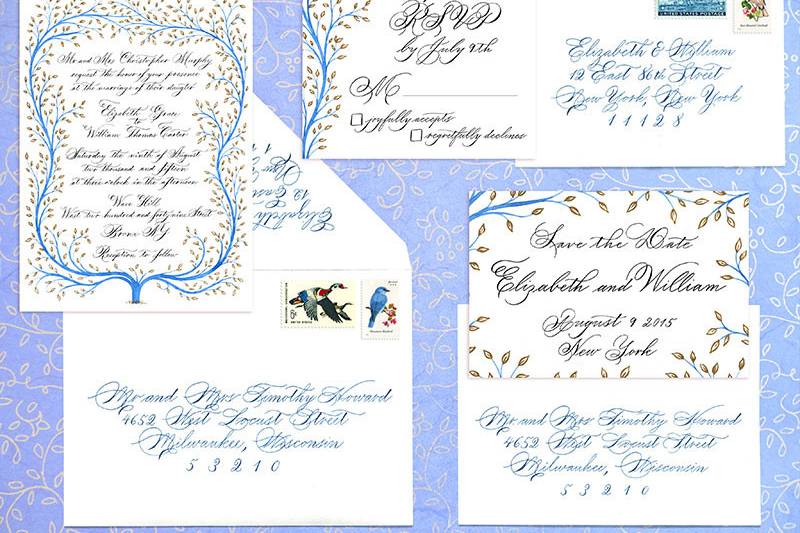 Mr and Mrs Christopher Murphy
request the honor of your presence
at the marriage of their daughter
Elizabeth Grace
William Thomas Carter
Saturday the ninth of August
two thousand and fifteen
at three o'clock in the afternoon
Wave Hill
West two hundred and forty-nine Street
Bronx NY
Reception to follow
RSVP
by July 9th
M
joyfully accepts
regretfully declines
UNITED STATES POSTAGE
Elizabeth & William
12 East 86th Street
New York, New York
11128
Elizabeth
12 East
New
Save the Date
Elizabeth and William
August 9 2015
New York
Mr and Mrs Timothy Howard
4652 West Locust Street
Milwaukee, Wisconsin
53210
Mr and Mrs Timothy Howard
4652 West Locust Street
Milwaukee, Wisconsin
53210